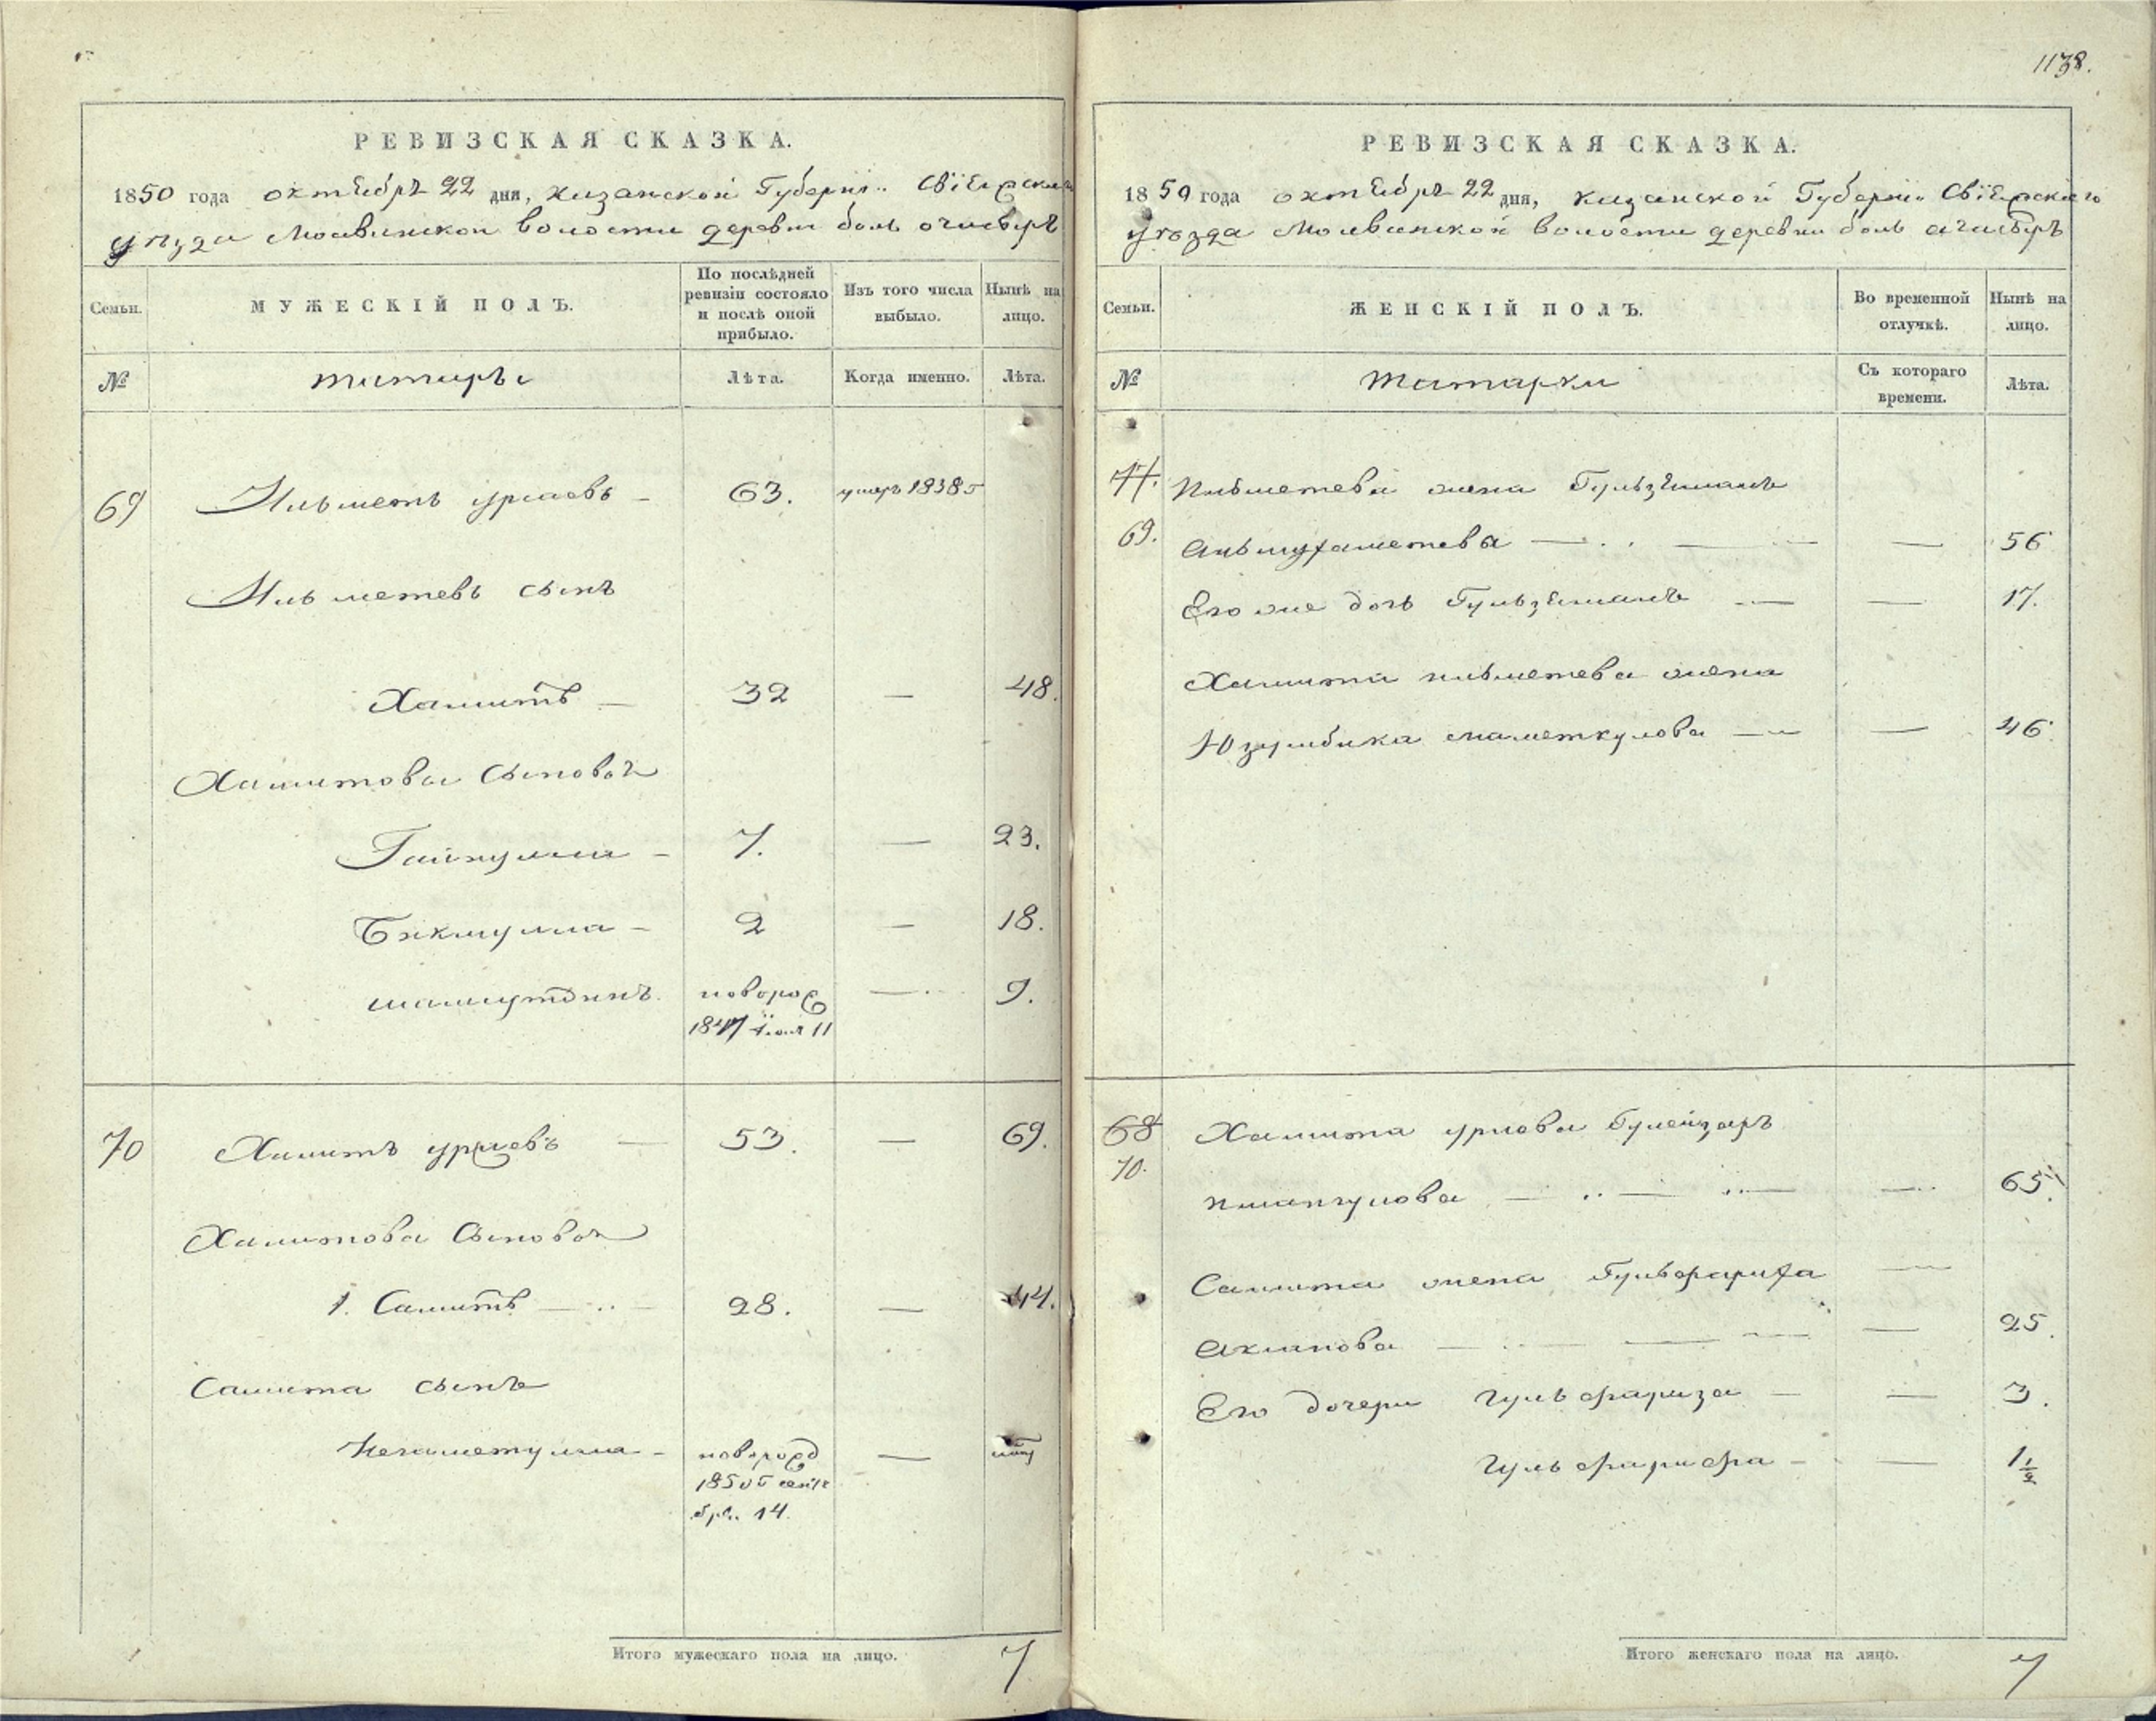 1138.
РЕВИЗСКАЯ СКАЗКА.
1850 года октября 22 дня, казанской Губерніи Свіяжскаго
уѣзда Молвинской волости деревни боль очасыръ
Семьи.
МУЖЕСКІЙ ПОЛЪ.
По послѣдней ревизіи состояло и послѣ оной прибыло.
Изъ того числа выбыло.
Нынѣ на лицо.
№
татары
Лѣта.
Когда именно.
Лѣта.
69
урмаевъ
63.
умеръ 1838
сынъ
Хамитъ
32
—
48.
Хамитова сыновья
7.
—
23.
Бикмулла
2
—
18.
шамгутдинъ.
новорож
11
—
9.
70
Хамитъ урмаевъ
53.
—
69.
Хамитова сыновья
1. Самитъ
28.
—
44.
Самита сынъ
Негаметулла
новорожд
1850 сентя
бря 14.
—
Итого мужескаго пола на лицо.
7
РЕВИЗСКАЯ СКАЗКА.
1850 года октября 22 дня, казанской Губерніи Свіяжскаго
уѣзда Молвинской волости деревни боль ачасыръ
Семьи.
ЖЕНСКІЙ ПОЛЪ.
Во временной отлучкѣ.
Нынѣ на лицо.
№
татарки
Съ котораго времени.
Лѣта.
жена Гульзямалъ
69.
—
56
Его же дочь Гульзямалъ
—
17.
Хамита жена
Юзумбика маметкулова
—
46.
68
70.
Хамита Гулейзаръ
—
65.
Самита жена Гульфариха
—
—
25.
Его дочери гульфариза
—
3.
гульфарифа
—
1½
Итого женскаго пола на лицо.
7